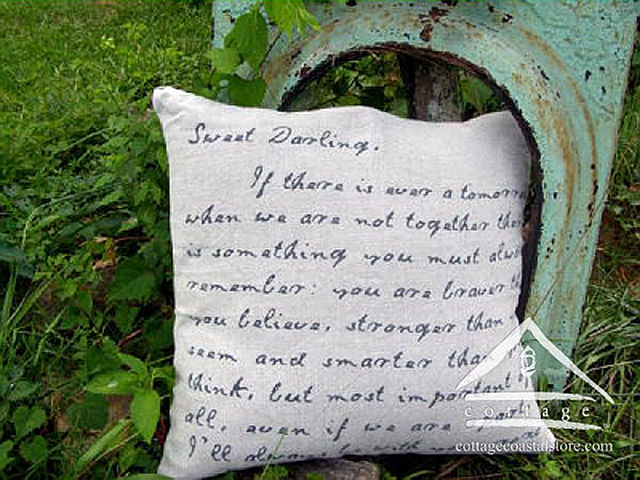 Sweet Darling.
If there is ever a tomorr
when we are not together the
is something you must alwa
remember: you are braver t
you believe, stronger than
seem and smarter than
think, but most important
all, even if we are apart
I'll always be with
cottage
cottagecoastalstore.com